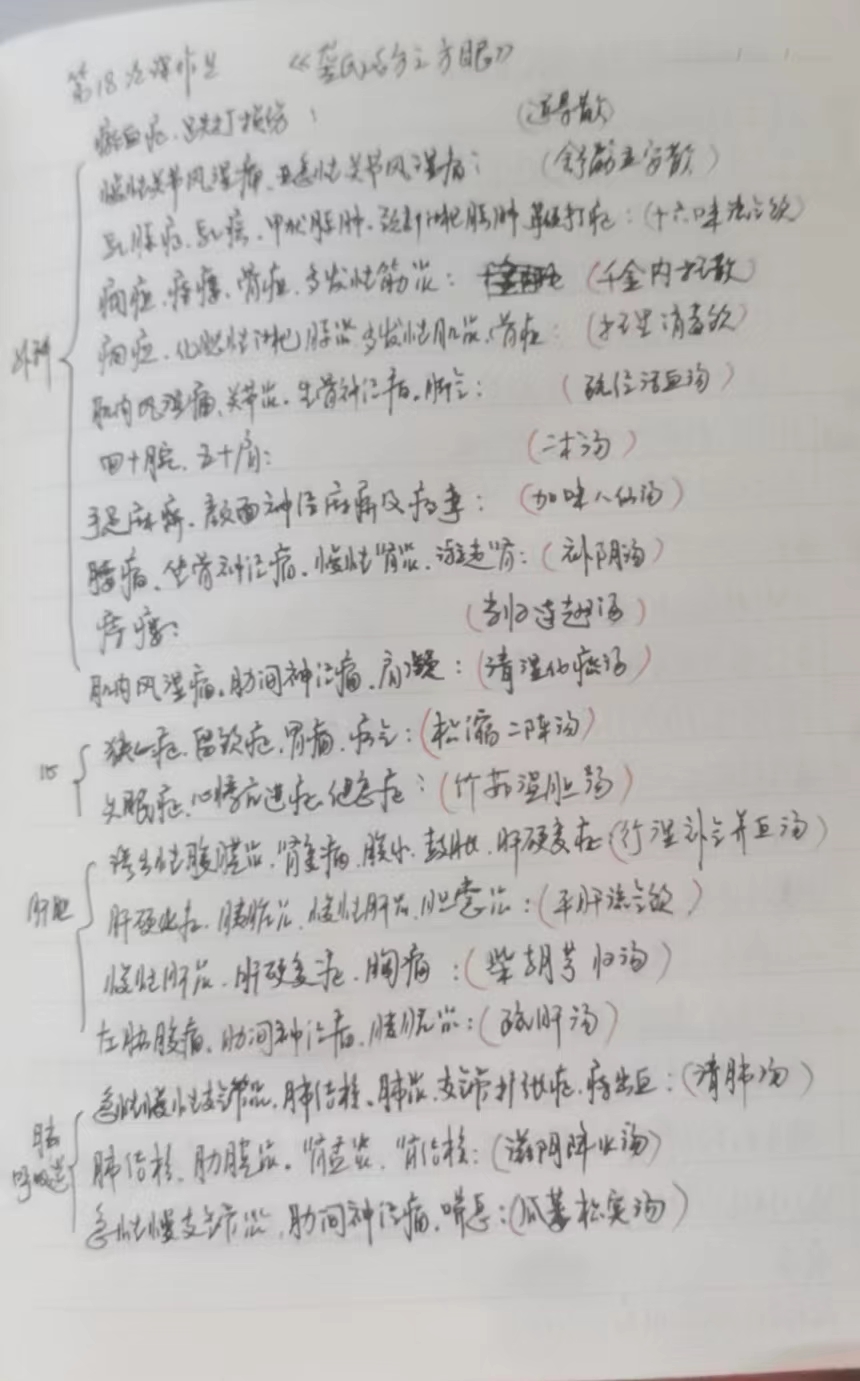 第18次课作业 《龚氏治方之方眼》
瘀血症、跌打损伤: (通导散)
慢性关节风湿痛、亚急性关节风湿痛: (舒筋立安散)
乳腺症、乳癌、甲状腺肿、颈部淋巴腺肿、打症: (十六味流气饮)
痈疽、痔瘘、骨疽、多发性筋炎: (千金内托散)
痈疽、化脓性淋巴腺炎、多发性肌炎、骨疽: (托里消毒饮)
外科
肌肉风湿痛、关节炎、坐骨神经痛、脚气: (疏经活血汤)
四十腕、五十肩: (二术汤)
手足麻痹、颜面神经麻痹及痉挛: (加味八仙汤)
腰痛、坐骨神经痛、慢性肾炎、游走肾: (补阴汤)
痔瘘: (当归连翘汤)
肌肉风湿痛、肋间神经痛、肩凝: (清湿化痰汤)
狭心症、留饮症、胃痛、疝气: (二陈汤)
心
失眠症、心悸亢进症、健忘症: (竹茹温胆汤)
渗出性腹膜炎、肾变病、腹水、鼓胀、肝硬变症 (行湿补气养血汤)
肝胆
肝硬化症、胰脏炎、慢性肝炎、胆囊炎: (平肝流气饮)
慢性肝炎、肝硬变症、胸痛: (柴胡芎归汤)
左胁腹痛、肋间神经痛、炎: (疏肝汤)
急性慢性支气管炎、肺结核、肺炎、支气管扩张症、出血: (清肺汤)
肺
呼吸道
肺结核、肋膜炎、肾盂炎、肾结核: (滋阴降火汤)
急性慢支气管炎、肋间神经痛、喘息: (瓜蒌枳实汤)